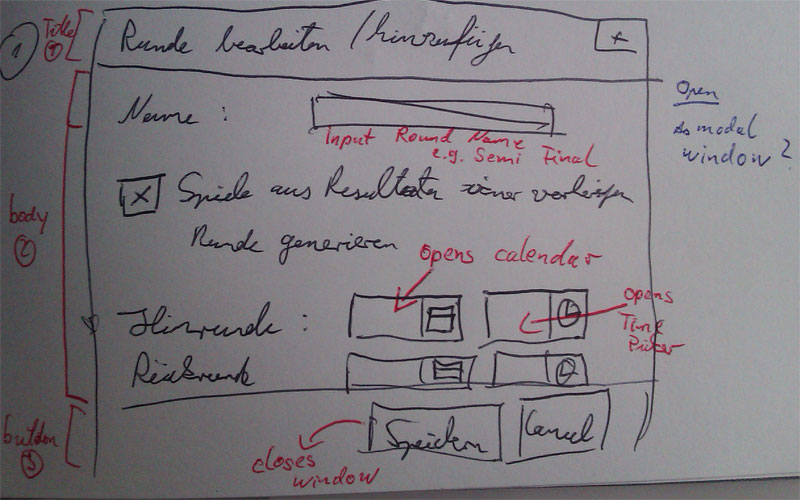 1
Title
1
Runde bearbeiten / hinzufügen
x
Open
As modal
window?
Name :
Input Round Name
e.g. Semi Final
x Spiele aus Resultaten einer vorherigen
Runde generieren
body
2
opens calendar
opens
Time
Picker
Hinrunde :
Rückrunde
button
3
Speichern
Cancel
closes
window